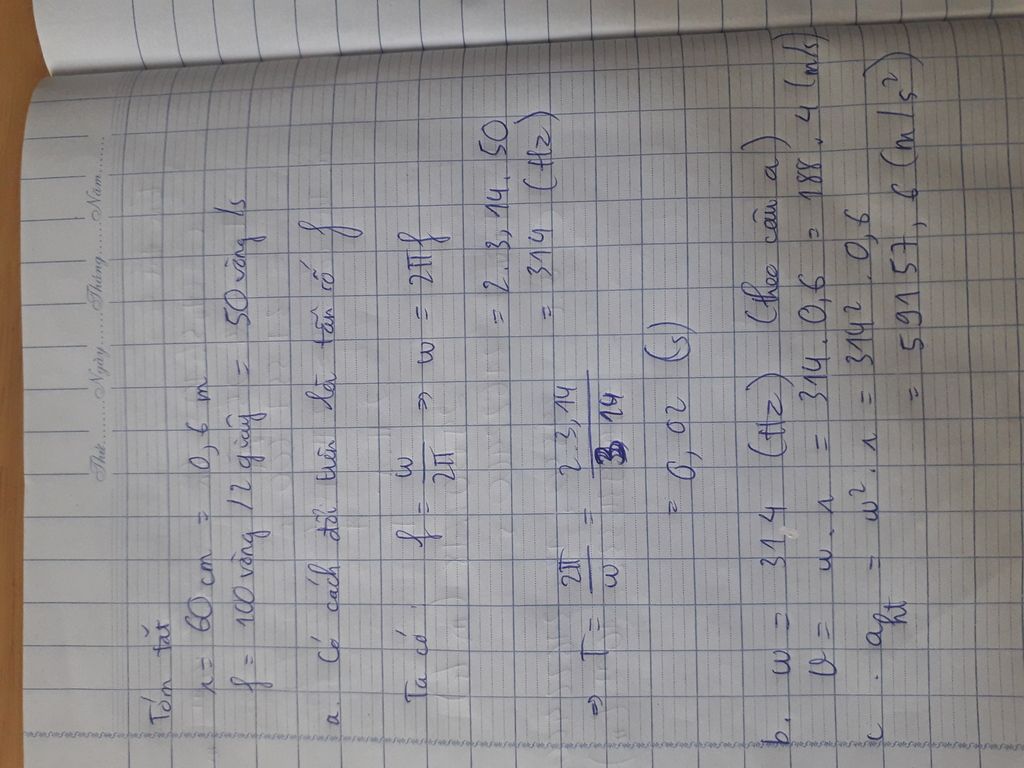 Thứ........Ngày........Tháng........Năm........
Tóm tắt
r = 60 cm = 0,6 m
f = 100 vòng / 2 giây = 50 vòng /s
a. Có cách đổi trên là tần số f
Ta có f = w/2π => w = 2πf
= 2.3,14.50
= 314 (Hz)
=> T = 2π/w = 2.3,14/314
= 0,02 (s)
b. w = 314 (Hz) (theo câu a)
v = w.r = 314.0,6 = 188,4 (m/s)
c. aht = w².r = 314².0,6
= 59157,6 (m/s²)